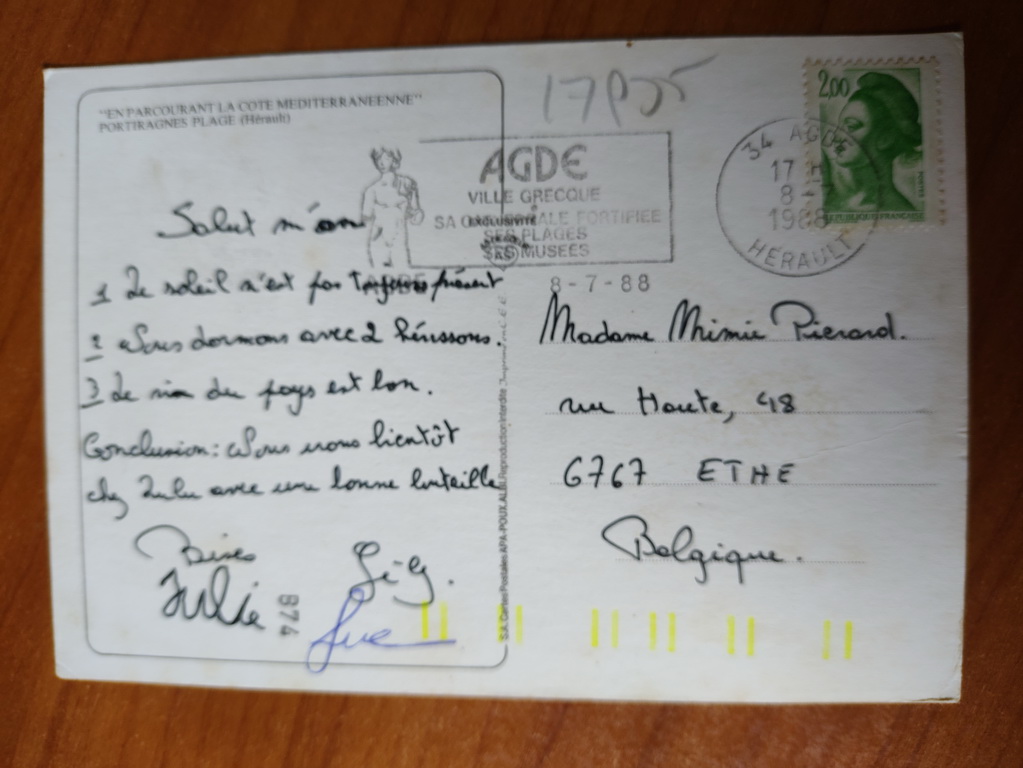 "EN PARCOURANT LA COTE MEDITERRANEENNE"
PORTIRAGNES PLAGE (Hérault)
Salut m'am
1 Le soleil n'est pas toujours présent
2 Nous dormons avec 2 hérissons.
3 Le vin du pays est bon.
Conclusion: Nous vous bientôt
chez Lulu avec une bonne bouteille
Bises
Julie
Gi-G.
Luc
874
17 P35
AGDE
VILLE GRECQUE
SA CATHEDRALE FORTIFIEE
EXCLUSIVITE
SES PLAGES
SES MUSEES
AGDE
8-7-88
34 AGDE
17 H
8-7
1988
HÉRAULT
2,00
POSTES
REPUBLIQUE FRANCAISE
S.A. Cartes Postales APA-POUX, ALBI, Reproduction Interdite
Madame Mimie Pierard.
rue Haute, 48
6767 ETHE
Belgique.